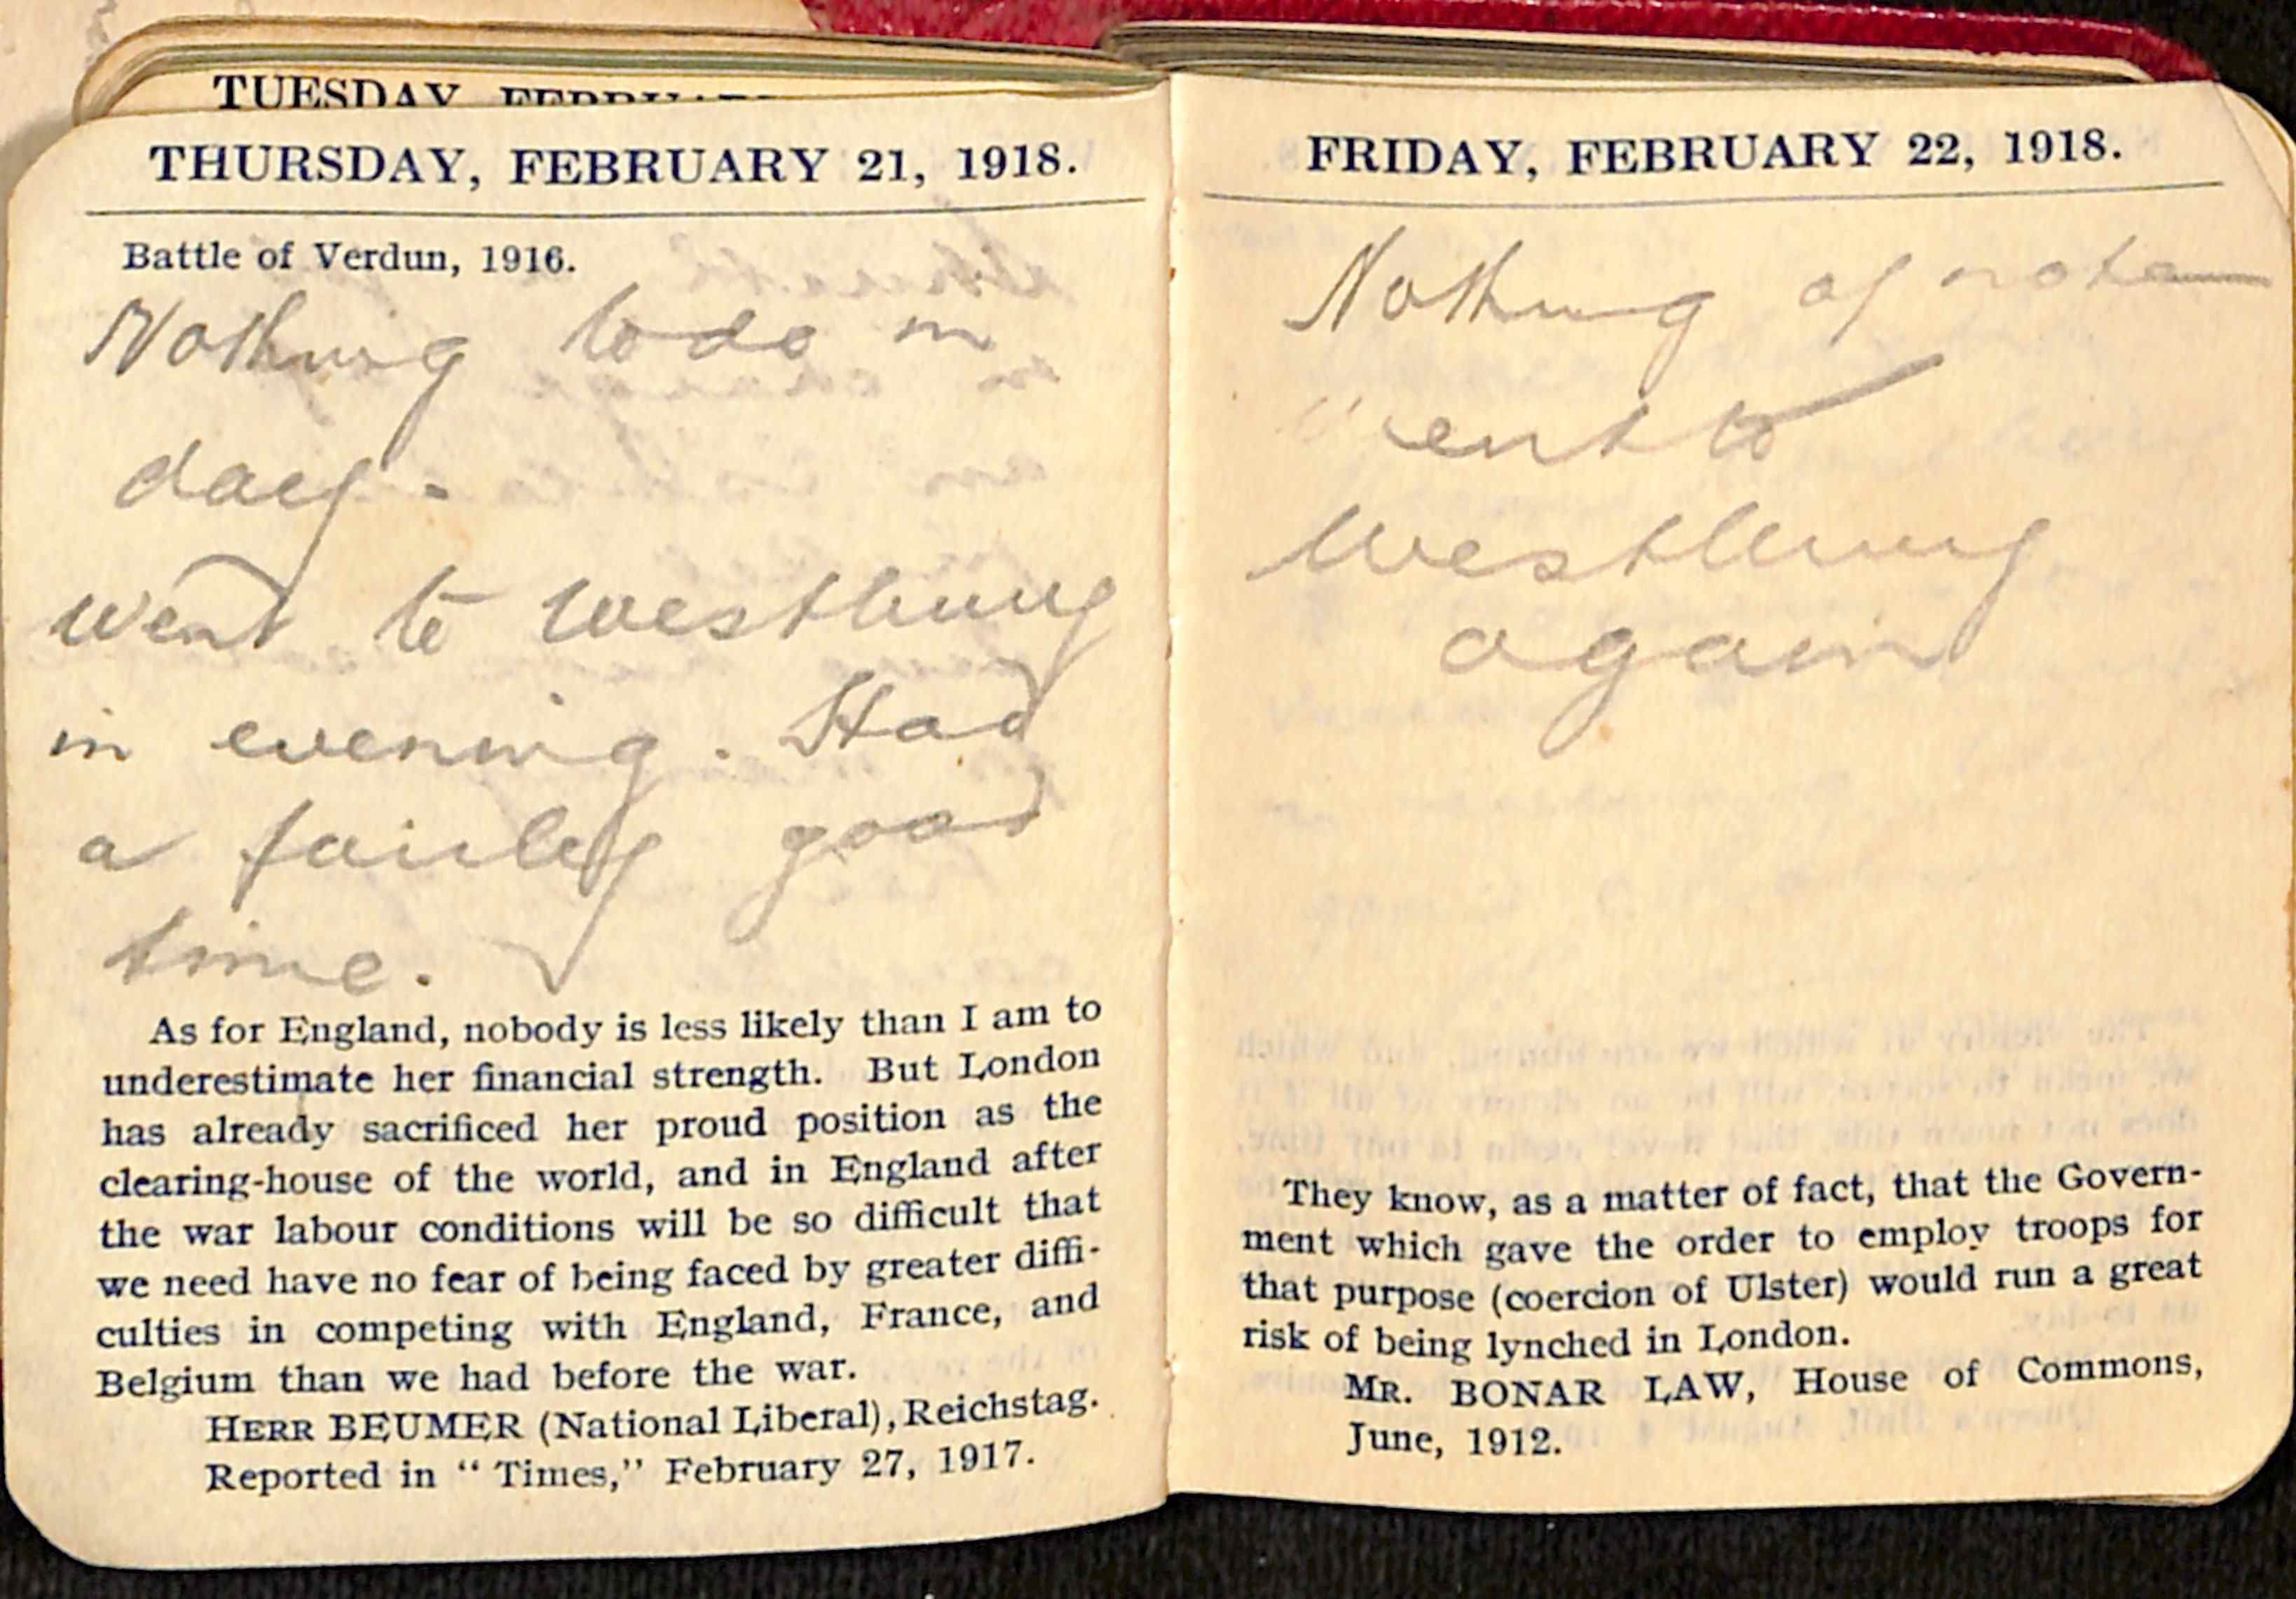 TUESDAY
THURSDAY, FEBRUARY 21, 1918.
Battle of Verdun, 1916.
Nothing to do in
day.
Went to Westbury
in evening. Had
a fairley good
time.
As for England, nobody is less likely than I am to
underestimate her financial strength. But London
has already sacrificed her proud position as the
clearing-house of the world, and in England after
the war labour conditions will be so difficult that
we need have no fear of being faced by greater diffi-
culties in competing with England, France, and
Belgium than we had before the war.
HERR BEUMER (National Liberal), Reichstag.
Reported in “ Times,” February 27, 1917.
FRIDAY, FEBRUARY 22, 1918.
Nothing of note
Went to
Westbury
again
They know, as a matter of fact, that the Govern-
ment which gave the order to employ troops for
that purpose (coercion of Ulster) would run a great
risk of being lynched in London.
MR. BONAR LAW, House of Commons,
June, 1912.